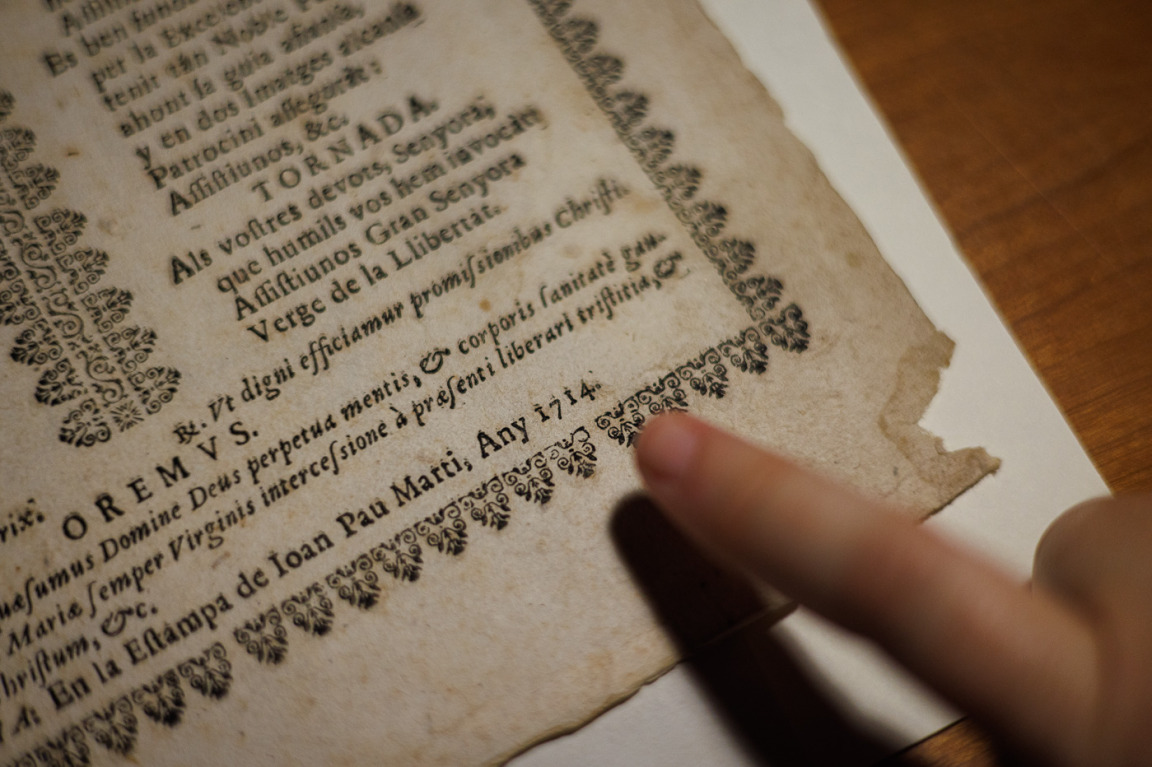 Es ben fundat
per la Excelen
tenir tan Noble
ahont la guia afinada,
y en dos Imatges
Patrocini assegurat:
Aſſiſtiunos, &c.
TORNADA.
Als voſtres devots, Senyora,
que humils vos hem invocàt,
Aſſiſtiunos Gran Senyora
Verge de la Llibertàt.
rix. ℞. Vt digni efficiamur promiſsionibus Chriſti.
OREMVS.
uæſumus Domine Deus perpetua mentis, & corporis ſanitatè gau-
Mariæ ſemper Virginis interceſsione à præſenti liberari triſtitia, &
hriſtum, &c.
A: En la Eſtampa de Ioan Pau Marti, Any 1714.